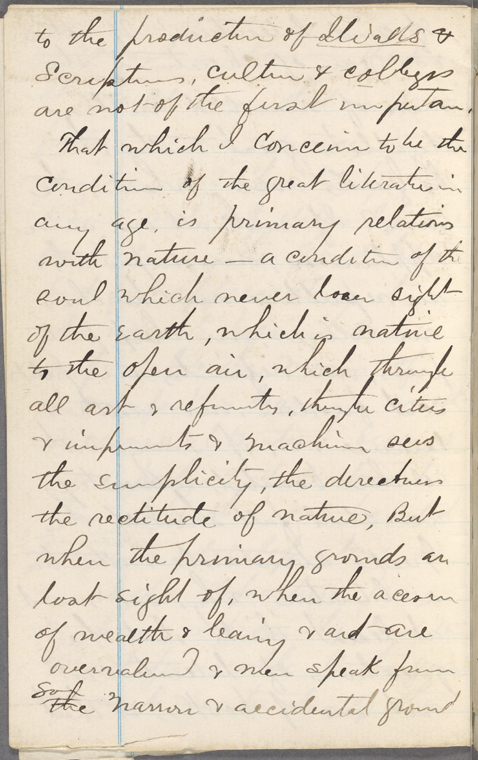 to the production of Iliads &
Scriptures, culture & colleges
are not of the first importan.
That which I conceive to be the
condition of the great literature in
any age, is primary relations
with nature – a condition of the
soul which never loses sight
of the earth, which is native
to the open air, which through
all art & refinements, through cities
& implements & machines sees
the simplicity, the directness
the rectitude of nature, But
when the primary grounds are
lost sight of, when the
of wealth & learning & art are
overvalued & men speak from
the narrow & accidental ground